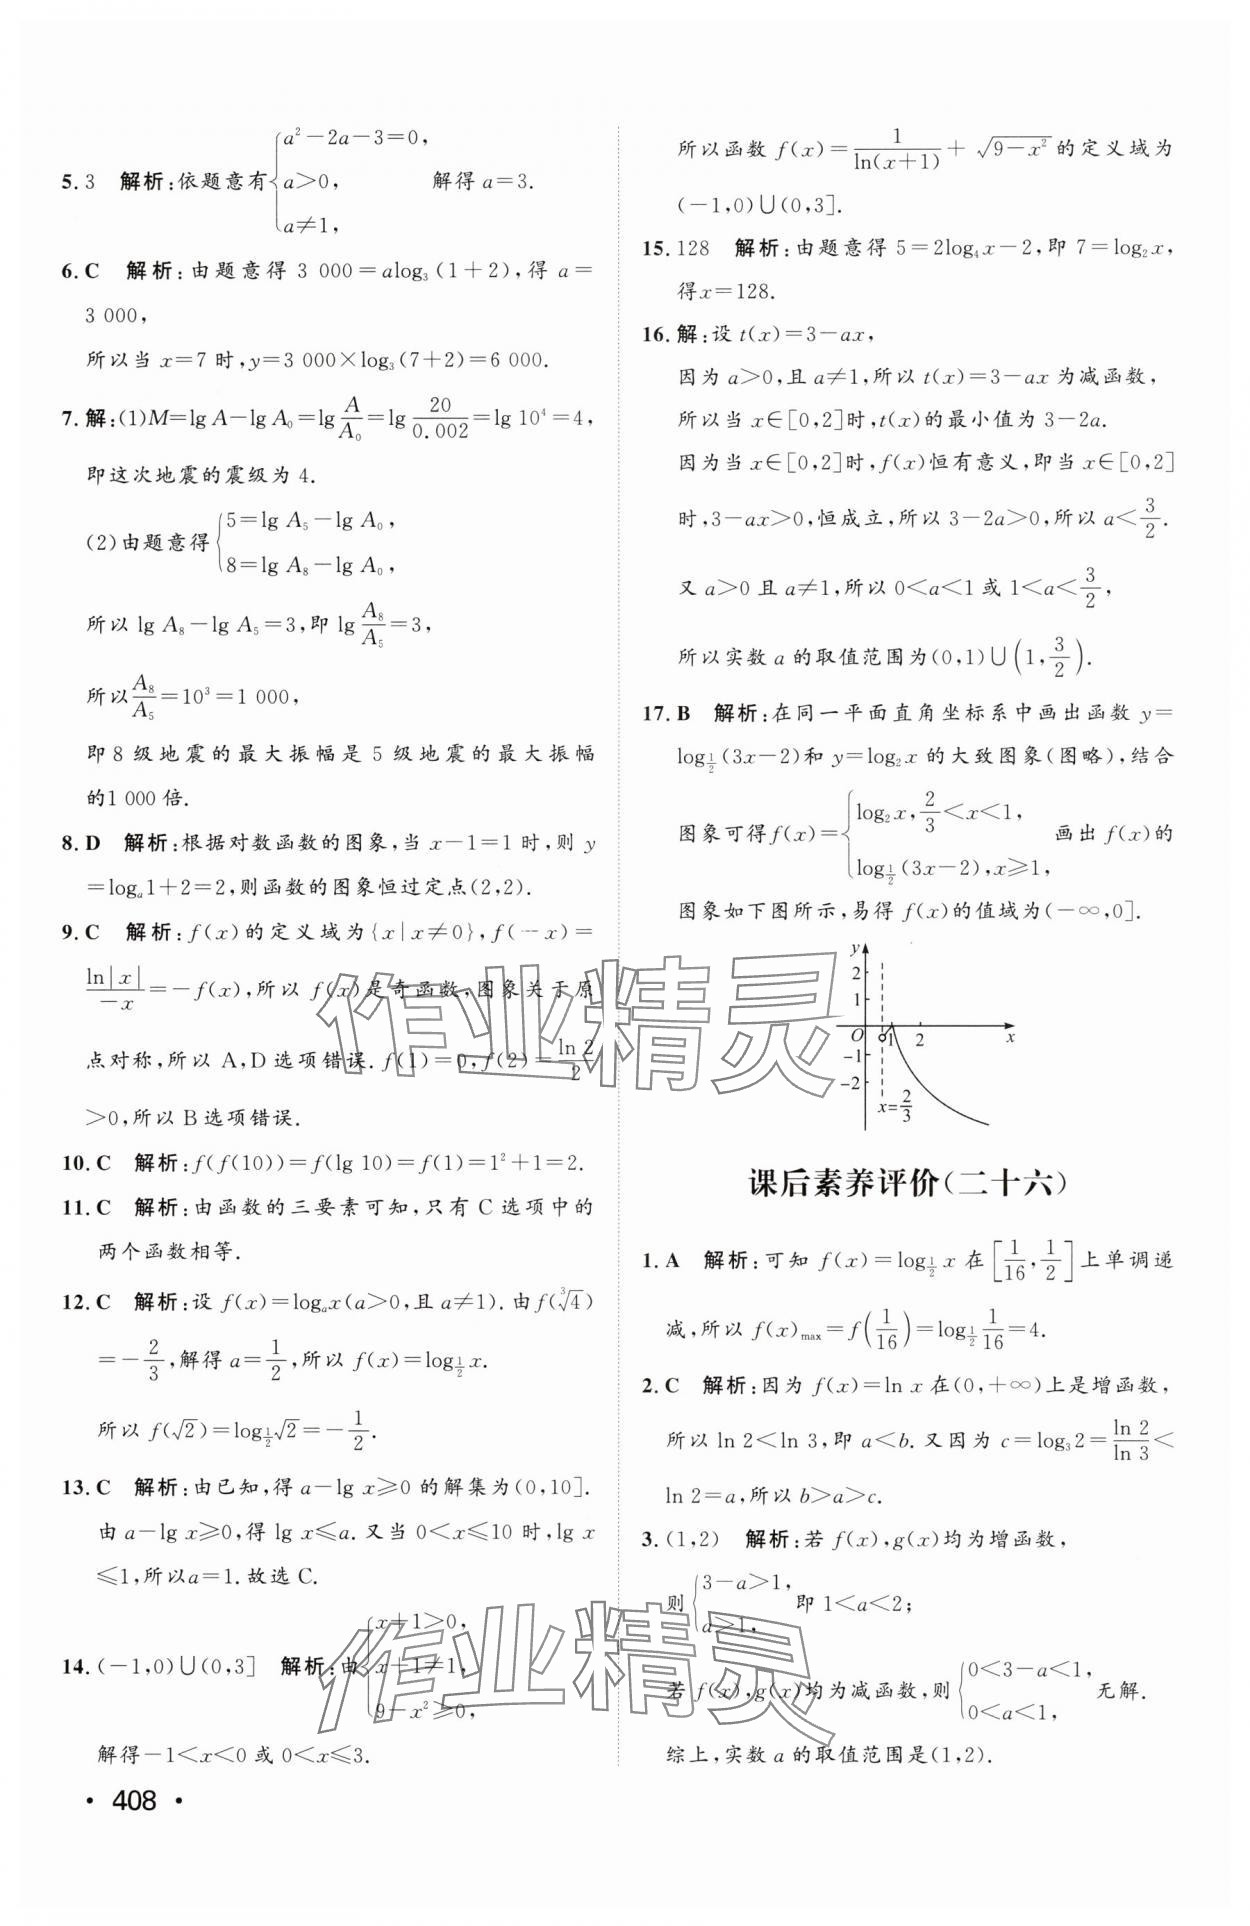 5. 3 解析:依题意有{a²-2a-3=0, a>0, a≠1, 解得 a=3.
6. C 解析:由题意得 3 000=alog₃(1+2),得 a=
3 000,
所以当 x=7 时,y=3 000×log₃(7+2)=6 000.
7. 解:(1)M=lg A-lg A₀=lg A/A₀=lg 20/0.002=lg 10⁴=4,
即这次地震的震级为 4.
(2)由题意得{5=lg A₅-lg A₀, 8=lg A₈-lg A₀,
所以 lg A₈-lg A₅=3,即 lg A₈/A₅=3,
所以 A₈/A₅=10³=1 000,
即 8 级地震的最大振幅是 5 级地震的最大振幅
的1 000 倍.
8. D 解析:根据对数函数的图象,当 x-1=1 时,则 y
=logₐ1+2=2,则函数的图象恒过定点(2,2).
9. C 解析:f(x)的定义域为{x|x≠0},f(-x)=
ln|x|/-x=-f(x),所以 f(x)是奇函数,图象关于原
点对称,所以 A,D 选项错误. f(1)=0,f(2)=ln 2/2
>0,所以 B 选项错误.
10. C 解析:f(f(10))=f(lg 10)=f(1)=1²+1=2.
11. C 解析:由函数的三要素可知,只有 C 选项中的
两个函数相等.
12. C 解析:设 f(x)=logₐx(a>0,且 a≠1). 由 f(∛4)
=-2/3,解得 a=1/2,所以 f(x)=log_{1/2}x.
所以 f(√2)=log_{1/2}√2=-1/2.
13. C 解析:由已知,得 a-lg x≥0 的解集为(0,10].
由 a-lg x≥0,得 lg x≤a. 又当 0<x≤10 时,lg x
≤1,所以a=1. 故选 C.
14. (-1,0)∪(0,3] 解析:由{x+1>0, x+1≠1, 9-x²≥0,
解得-1<x<0 或 0<x≤3.
• 408 •
所以函数 f(x)=1/ln(x+1)+√(9-x²)的定义域为
(-1,0)∪(0,3].
15. 128 解析:由题意得 5=2log₄x-2,即 7=log₂x,
得x=128.
16. 解:设 t(x)=3-ax,
因为 a>0,且 a≠1,所以 t(x)=3-ax 为减函数,
所以当 x∈[0,2]时,t(x)的最小值为 3-2a.
因为当 x∈[0,2]时,f(x)恒有意义,即当 x∈[0,2]
时,3-ax>0,恒成立,所以 3-2a>0,所以 a<3/2.
又 a>0 且 a≠1,所以 0<a<1 或 1<a<3/2,
所以实数 a 的取值范围为(0,1)∪(1,3/2).
17. B 解析:在同一平面直角坐标系中画出函数 y=
log_{1/2}(3x-2)和 y=log₂x 的大致图象(图略),结合
图象可得 f(x)={log₂x,2/3<x<1, log_{1/2}(3x-2),x≥1, 画出 f(x)的
图象如下图所示,易得 f(x)的值域为(-∞,0].
y
2
1
O 1 2 x
-1
-2
x=2/3
课后素养评价(二十六)
1. A 解析:可知 f(x)=log_{1/2}x 在[1/16,1/2]上单调递
减,所以 f(x)max=f(1/16)=log_{1/2}1/16=4.
2. C 解析:因为 f(x)=ln x 在(0,+∞)上是增函数,
所以 ln 2<ln 3,即 a<b. 又因为 c=log₃2=ln 2/ln 3<
ln 2=a,所以 b>a>c.
3. (1,2) 解析:若 f(x),g(x)均为增函数,
则{3-a>1, a>1, 即 1<a<2;
若 f(x),g(x)均为减函数,则{0<3-a<1, 0<a<1, 无解.
综上,实数 a 的取值范围是(1,2).
作业精灵
作业精灵